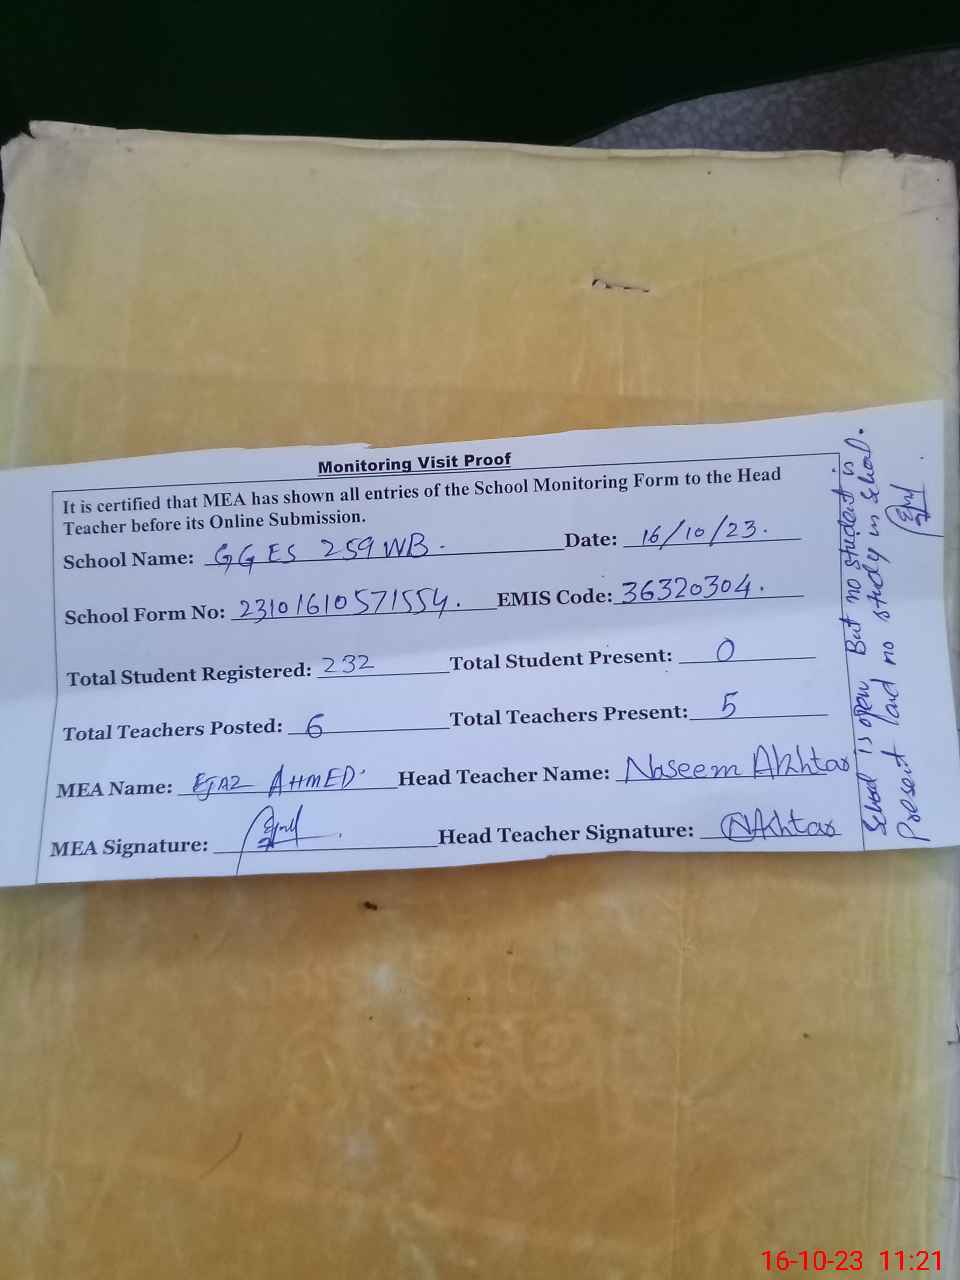 Monitoring Visit Proof
It is certified that MEA has shown all entries of the School Monitoring Form to the Head
Teacher before its Online Submission.
School Name: GGES 259 WB. Date: 16/10/23.
School Form No: 23101610571554. EMIS Code: 36320304.
Total Student Registered: 232 Total Student Present: 0
Total Teachers Posted: 6 Total Teachers Present: 5
MEA Name: EJAZ AHMED Head Teacher Name: Naseem Akhtar
MEA Signature: Head Teacher Signature: NAkhtar
School is open But no student is
Present and no study in School.
16-10-23 11:21